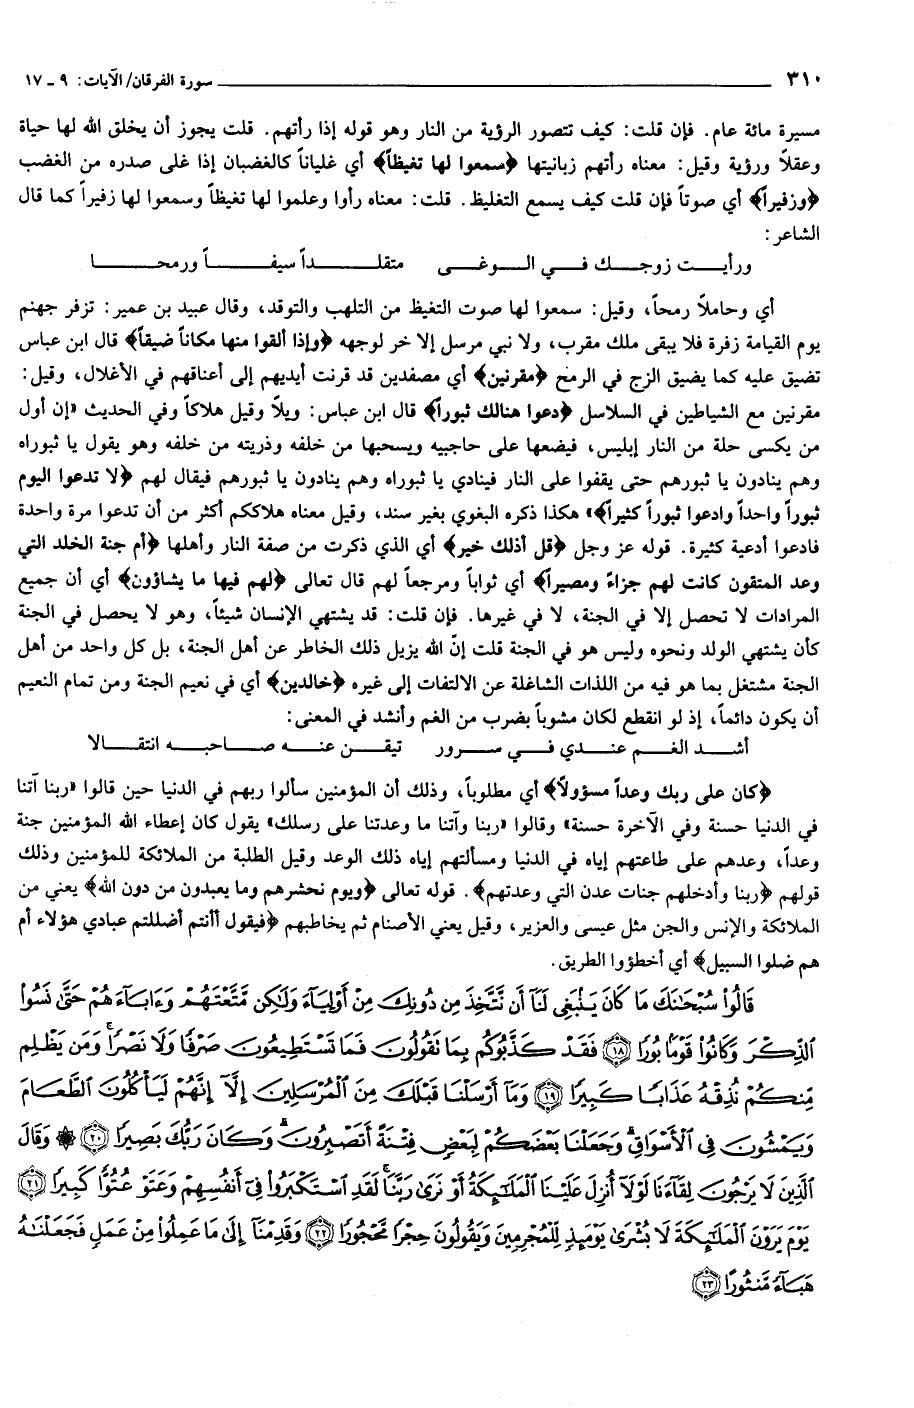 ٣١٠ سورة الفرقان/ الآيات: ٩ ـ ١٧
مسيرة مائة عام. فإن قلت: كيف تتصور الرؤية من النار وهو قوله إذا رأتهم. قلت يجوز أن يخلق الله لها حياة
وعقلاً ورؤية وقيل: معناه رأتهم زبانيتها ﴿سمعوا لها تغيظاً﴾ أي غلياناً كالغضبان إذا غلى صدره من الغضب
﴿وزفيراً﴾ أي صوتاً فإن قلت كيف يسمع التغليظ. قلت: معناه رأوا وعلموا لها تغيظاً وسمعوا لها زفيراً كما قال
الشاعر:
ورأيـت زوجـك فـي الـوغـى متقلـداً سيفـاً ورمحـا
أي وحاملاً رمحاً، وقيل: سمعوا لها صوت التغيظ من التلهب والتوقد، وقال عبيد بن عمير: تزفر جهنم
يوم القيامة زفرة فلا يبقى ملك مقرب، ولا نبي مرسل إلا خر لوجهه ﴿وإذا ألقوا منها مكاناً ضيقاً﴾ قال ابن عباس
تضيق عليه كما يضيق الزج في الرمح ﴿مقرنين﴾ أي مصفدين قد قرنت أيديهم إلى أعناقهم في الأغلال، وقيل:
مقرنين مع الشياطين في السلاسل ﴿دعوا هنالك ثبوراً﴾ قال ابن عباس: ويلاً وقيل هلاكاً وفي الحديث «إن أول
من يكسى حلة من النار إبليس، فيضعها على حاجبيه ويسحبها من خلفه وذريته من خلفه وهو يقول يا ثبوراه
وهم ينادون يا ثبورهم حتى يقفوا على النار فينادي يا ثبوراه وهم ينادون يا ثبورهم فيقال لهم ﴿لا تدعوا اليوم
ثبوراً واحداً وادعوا ثبوراً كثيراً﴾» هكذا ذكره البغوي بغير سند، وقيل معناه هلاككم أكثر من أن تدعوا مرة واحدة
فادعوا أدعية كثيرة. قوله عز وجل ﴿قل أذلك خير﴾ أي الذي ذكرت من صفة النار وأهلها ﴿أم جنة الخلد التي
وعد المتقون كانت لهم جزاءً ومصيراً﴾ أي ثواباً ومرجعاً لهم قال تعالى ﴿لهم فيها ما يشاؤون﴾ أي أن جميع
المرادات لا تحصل إلا في الجنة، لا في غيرها. فإن قلت: قد يشتهي الإنسان شيئاً، وهو لا يحصل في الجنة
كأن يشتهي الولد ونحوه وليس هو في الجنة قلت إنّ الله يزيل ذلك الخاطر عن أهل الجنة، بل كل واحد من أهل
الجنة مشتغل بما هو فيه من اللذات الشاغلة عن الالتفات إلى غيره ﴿خالدين﴾ أي في نعيم الجنة ومن تمام النعيم
أن يكون دائماً، إذ لو انقطع لكان مشوباً بضرب من الغم وأنشد في المعنى:
أشـد الغـم عنـدي فـي سـرور تيقـن عنـه صـاحبـه انتقـالا
﴿كان على ربك وعداً مسؤولاً﴾ أي مطلوباً، وذلك أن المؤمنين سألوا ربهم في الدنيا حين قالوا «ربنا آتنا
في الدنيا حسنة وفي الآخرة حسنة» وقالوا «ربنا وآتنا ما وعدتنا على رسلك» يقول كان إعطاء الله المؤمنين جنة
وعداً، وعدهم على طاعتهم إياه في الدنيا ومسألتهم إياه ذلك الوعد وقيل الطلبة من الملائكة للمؤمنين وذلك
قولهم ﴿ربنا وأدخلهم جنات عدن التي وعدتهم﴾. قوله تعالى ﴿ويوم نحشرهم وما يعبدون من دون الله﴾ يعني من
الملائكة والإنس والجن مثل عيسى والعزير، وقيل يعني الأصنام ثم يخاطبهم ﴿فيقول أأنتم أضللتم عبادي هؤلاء أم
هم ضلوا السبيل﴾ أي أخطؤوا الطريق.
قَالُوا۟ سُبْحَٰنَكَ مَا كَانَ يَنۢبَغِى لَنَآ أَن نَّتَّخِذَ مِن دُونِكَ مِنْ أَوْلِيَآءَ وَلَٰكِن مَّتَّعْتَهُمْ وَءَابَآءَهُمْ حَتَّىٰ نَسُوا۟
ٱلذِّكْرَ وَكَانُوا۟ قَوْمًۢا بُورًا ﴿١٨﴾ فَقَدْ كَذَّبُوكُم بِمَا تَقُولُونَ فَمَا تَسْتَطِيعُونَ صَرْفًا وَلَا نَصْرًا ۚ وَمَن يَظْلِم
مِّنكُمْ نُذِقْهُ عَذَابًا كَبِيرًا ﴿١٩﴾ وَمَآ أَرْسَلْنَا قَبْلَكَ مِنَ ٱلْمُرْسَلِينَ إِلَّآ إِنَّهُمْ لَيَأْكُلُونَ ٱلطَّعَامَ
وَيَمْشُونَ فِى ٱلْأَسْوَاقِ ۗ وَجَعَلْنَا بَعْضَكُمْ لِبَعْضٍ فِتْنَةً أَتَصْبِرُونَ ۗ وَكَانَ رَبُّكَ بَصِيرًا ﴿٢٠﴾ ۞ وَقَالَ
ٱلَّذِينَ لَا يَرْجُونَ لِقَآءَنَا لَوْلَآ أُنزِلَ عَلَيْنَا ٱلْمَلَٰٓئِكَةُ أَوْ نَرَىٰ رَبَّنَا ۗ لَقَدِ ٱسْتَكْبَرُوا۟ فِىٓ أَنفُسِهِمْ وَعَتَوْ عُتُوًّا كَبِيرًا ﴿٢١﴾
يَوْمَ يَرَوْنَ ٱلْمَلَٰٓئِكَةَ لَا بُشْرَىٰ يَوْمَئِذٍ لِّلْمُجْرِمِينَ وَيَقُولُونَ حِجْرًا مَّحْجُورًا ﴿٢٢﴾ وَقَدِمْنَآ إِلَىٰ مَا عَمِلُوا۟ مِنْ عَمَلٍ فَجَعَلْنَٰهُ
هَبَآءً مَّنثُورًا ﴿٢٣﴾